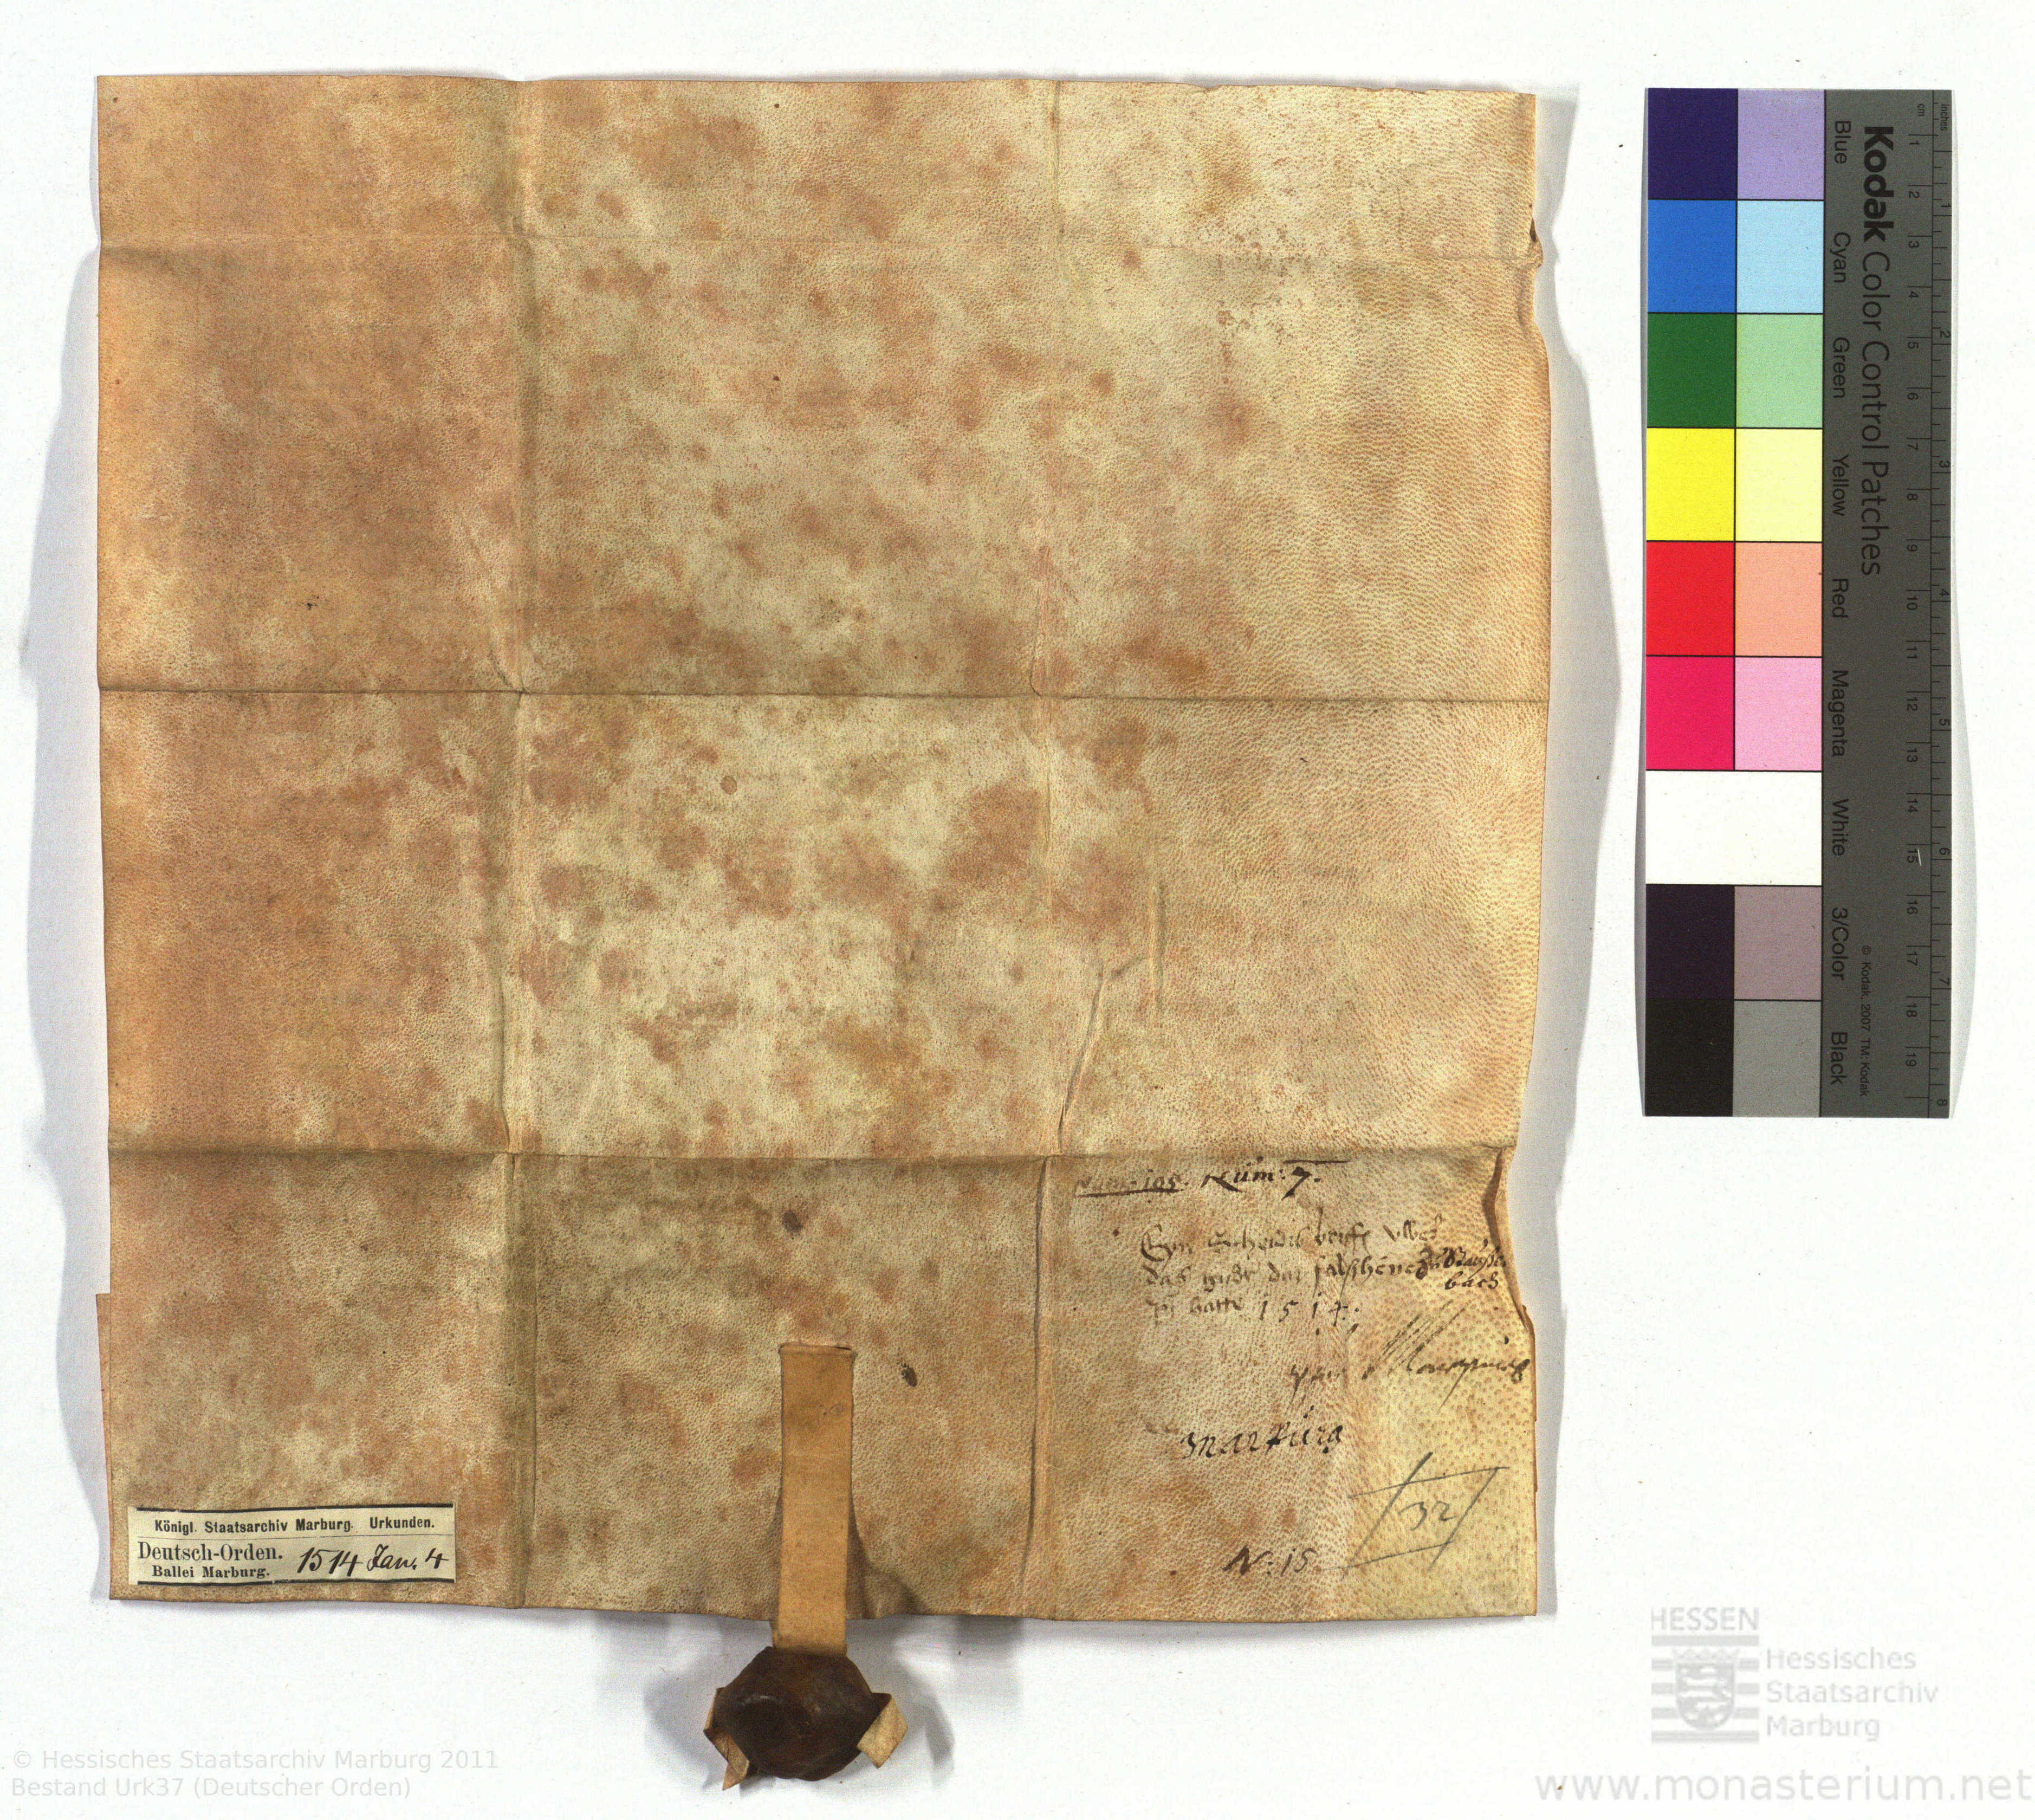 Num: 105. Num: 7.
Eyn Scheidis briffe
das
hatte 1514.
Marpurg
32
N: 15
Königl. Staatsarchiv Marburg. Urkunden.
Deutsch-Orden. 1514 Jan. 4
Ballei Marburg.
Kodak Color Control Patches
Blue Cyan Green Yellow Red Magenta White 3/Color Black
© Kodak, 2007 TM: Kodak
inches 1 2 3 4 5 6 7 8
cm 1 2 3 4 5 6 7 8 9 10 11 12 13 14 15 16 17 18 19
HESSEN
Hessisches
Staatsarchiv
Marburg
© Hessisches Staatsarchiv Marburg 2011
Bestand Urk37 (Deutscher Orden)
www.monasterium.net